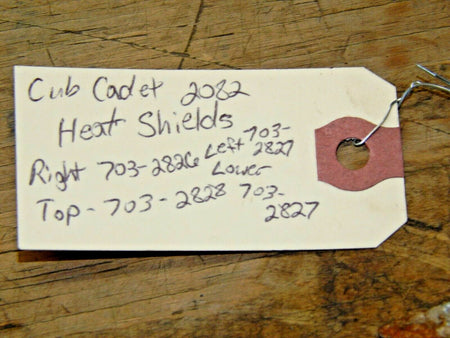 Cub Cadet 2082
Heat Shields
Right 703-2826 Left 703-2827
Lower 703-2827
Top - 703-2828